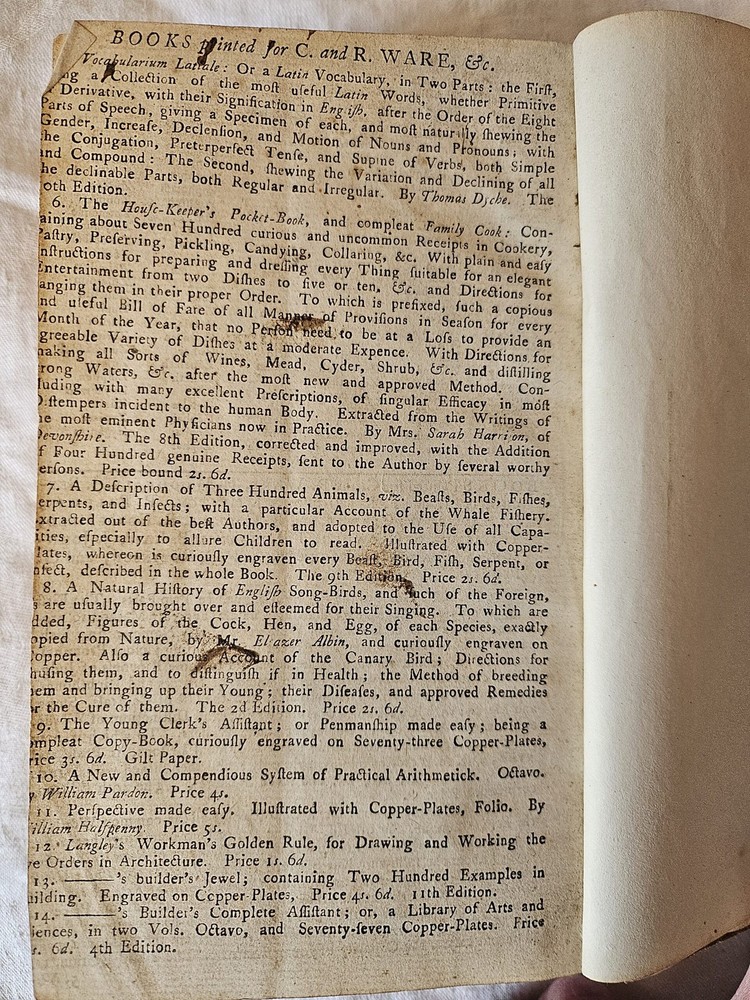 BOOKS printed for C. and R. WARE, &c.
Vocabularium Latiale: Or a Latin Vocabulary, in Two Parts: the First,
ng a Collection of the most useful Latin Words, whether Primitive
Derivative, with their Signification in English, after the Order of the Eight
Parts of Speech, giving a Specimen of each, and most naturally shewing the
Gender, Increase, Declension, and Motion of Nouns and Pronouns; with
he Conjugation, Preterperfect Tense, and Supine of Verbs, both Simple
and Compound: The Second, shewing the Variation and Declining of all
he declinable Parts, both Regular and Irregular. By Thomas Dyche. The
oth Edition.
6. The House-Keeper's Pocket-Book, and compleat Family Cook: Con-
aining about Seven Hundred curious and uncommon Receipts in Cookery,
Pastry, Preserving, Pickling, Candying, Collaring, &c. With plain and easy
nstructions for preparing and dressing every Thing suitable for an elegant
Entertainment from two Dishes to five or ten, &c. and Directions for
anging them in their proper Order. To which is prefixed, such a copious
nd useful Bill of Fare of all Manner of Provisions in Season for every
Month of the Year, that no Person need to be at a Loss to provide an
greeable Variety of Dishes at a moderate Expence. With Directions for
making all Sorts of Wines, Mead, Cyder, Shrub, &c. and distilling
rong Waters, &c. after the most new and approved Method. Con-
luding with many excellent Prescriptions, of singular Efficacy in most
D.stempers incident to the human Body. Extracted from the Writings of
e most eminent Physicians now in Practice. By Mrs. Sarah Harrison, of
Devonshire. The 8th Edition, corrected and improved, with the Addition
f Four Hundred genuine Receipts, sent to the Author by several worthy
ersons. Price bound 2s. 6d.
7. A Description of Three Hundred Animals, viz. Beasts, Birds, Fishes,
erpents, and Insects; with a particular Account of the Whale Fishery.
xtracted out of the best Authors, and adopted to the Use of all Capa-
ities, especially to allure Children to read. Illustrated with Copper-
lates, whereon is curiously engraven every Beast, Bird, Fish, Serpent, or
nsect, described in the whole Book. The 9th Edition. Price 2s. 6d.
8. A Natural History of English Song-Birds, and such of the Foreign,
s are usually brought over and esteemed for their Singing. To which are
dded, Figures of the Cock, Hen, and Egg, of each Species, exactly
opied from Nature, by Mr. Eleazer Albin, and curiously engraven on
opper. Also a curious Account of the Canary Bird; Directions for
husing them, and to distinguish if in Health; the Method of breeding
hem and bringing up their Young; their Diseases, and approved Remedies
r the Cure of them. The 2d Edition. Price 2s. 6d.
9. The Young Clerk's Assistant; or Penmanship made easy; being a
ompleat Copy-Book, curiously engraved on Seventy-three Copper-Plates,
rice 3s. 6d. Gilt Paper.
10. A New and Compendious System of Practical Arithmetick. Octavo.
y William Pardon. Price 4s.
11. Perspective made easy. Illustrated with Copper-Plates, Folio. By
illiam Halfpenny. Price 5s.
12. Langley's Workman's Golden Rule, for Drawing and Working the
ve Orders in Architecture. Price 1s. 6d.
13. ———'s builder's Jewel; containing Two Hundred Examples in
uilding. Engraved on Copper-Plates, Price 4s. 6d. 11th Edition.
14. ———'s Builder's Complete Assistant; or, a Library of Arts and
iences, in two Vols. Octavo, and Seventy-seven Copper-Plates. Price
s. 6d. 4th Edition.